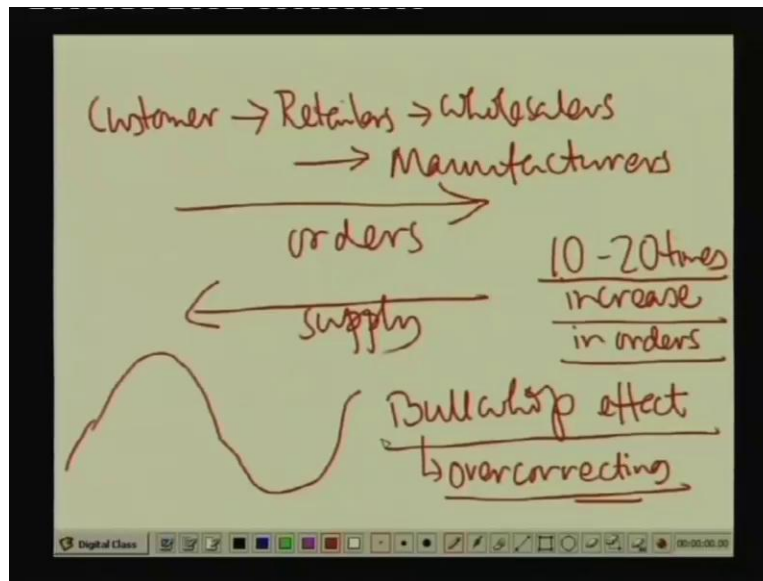 Customer → Retailers → Wholesalers
→ Manufacturers
orders
10-20 times
increase
in orders
supply
Bullwhip effect
↳ overcorrecting
Digital Class
00:00:00.00